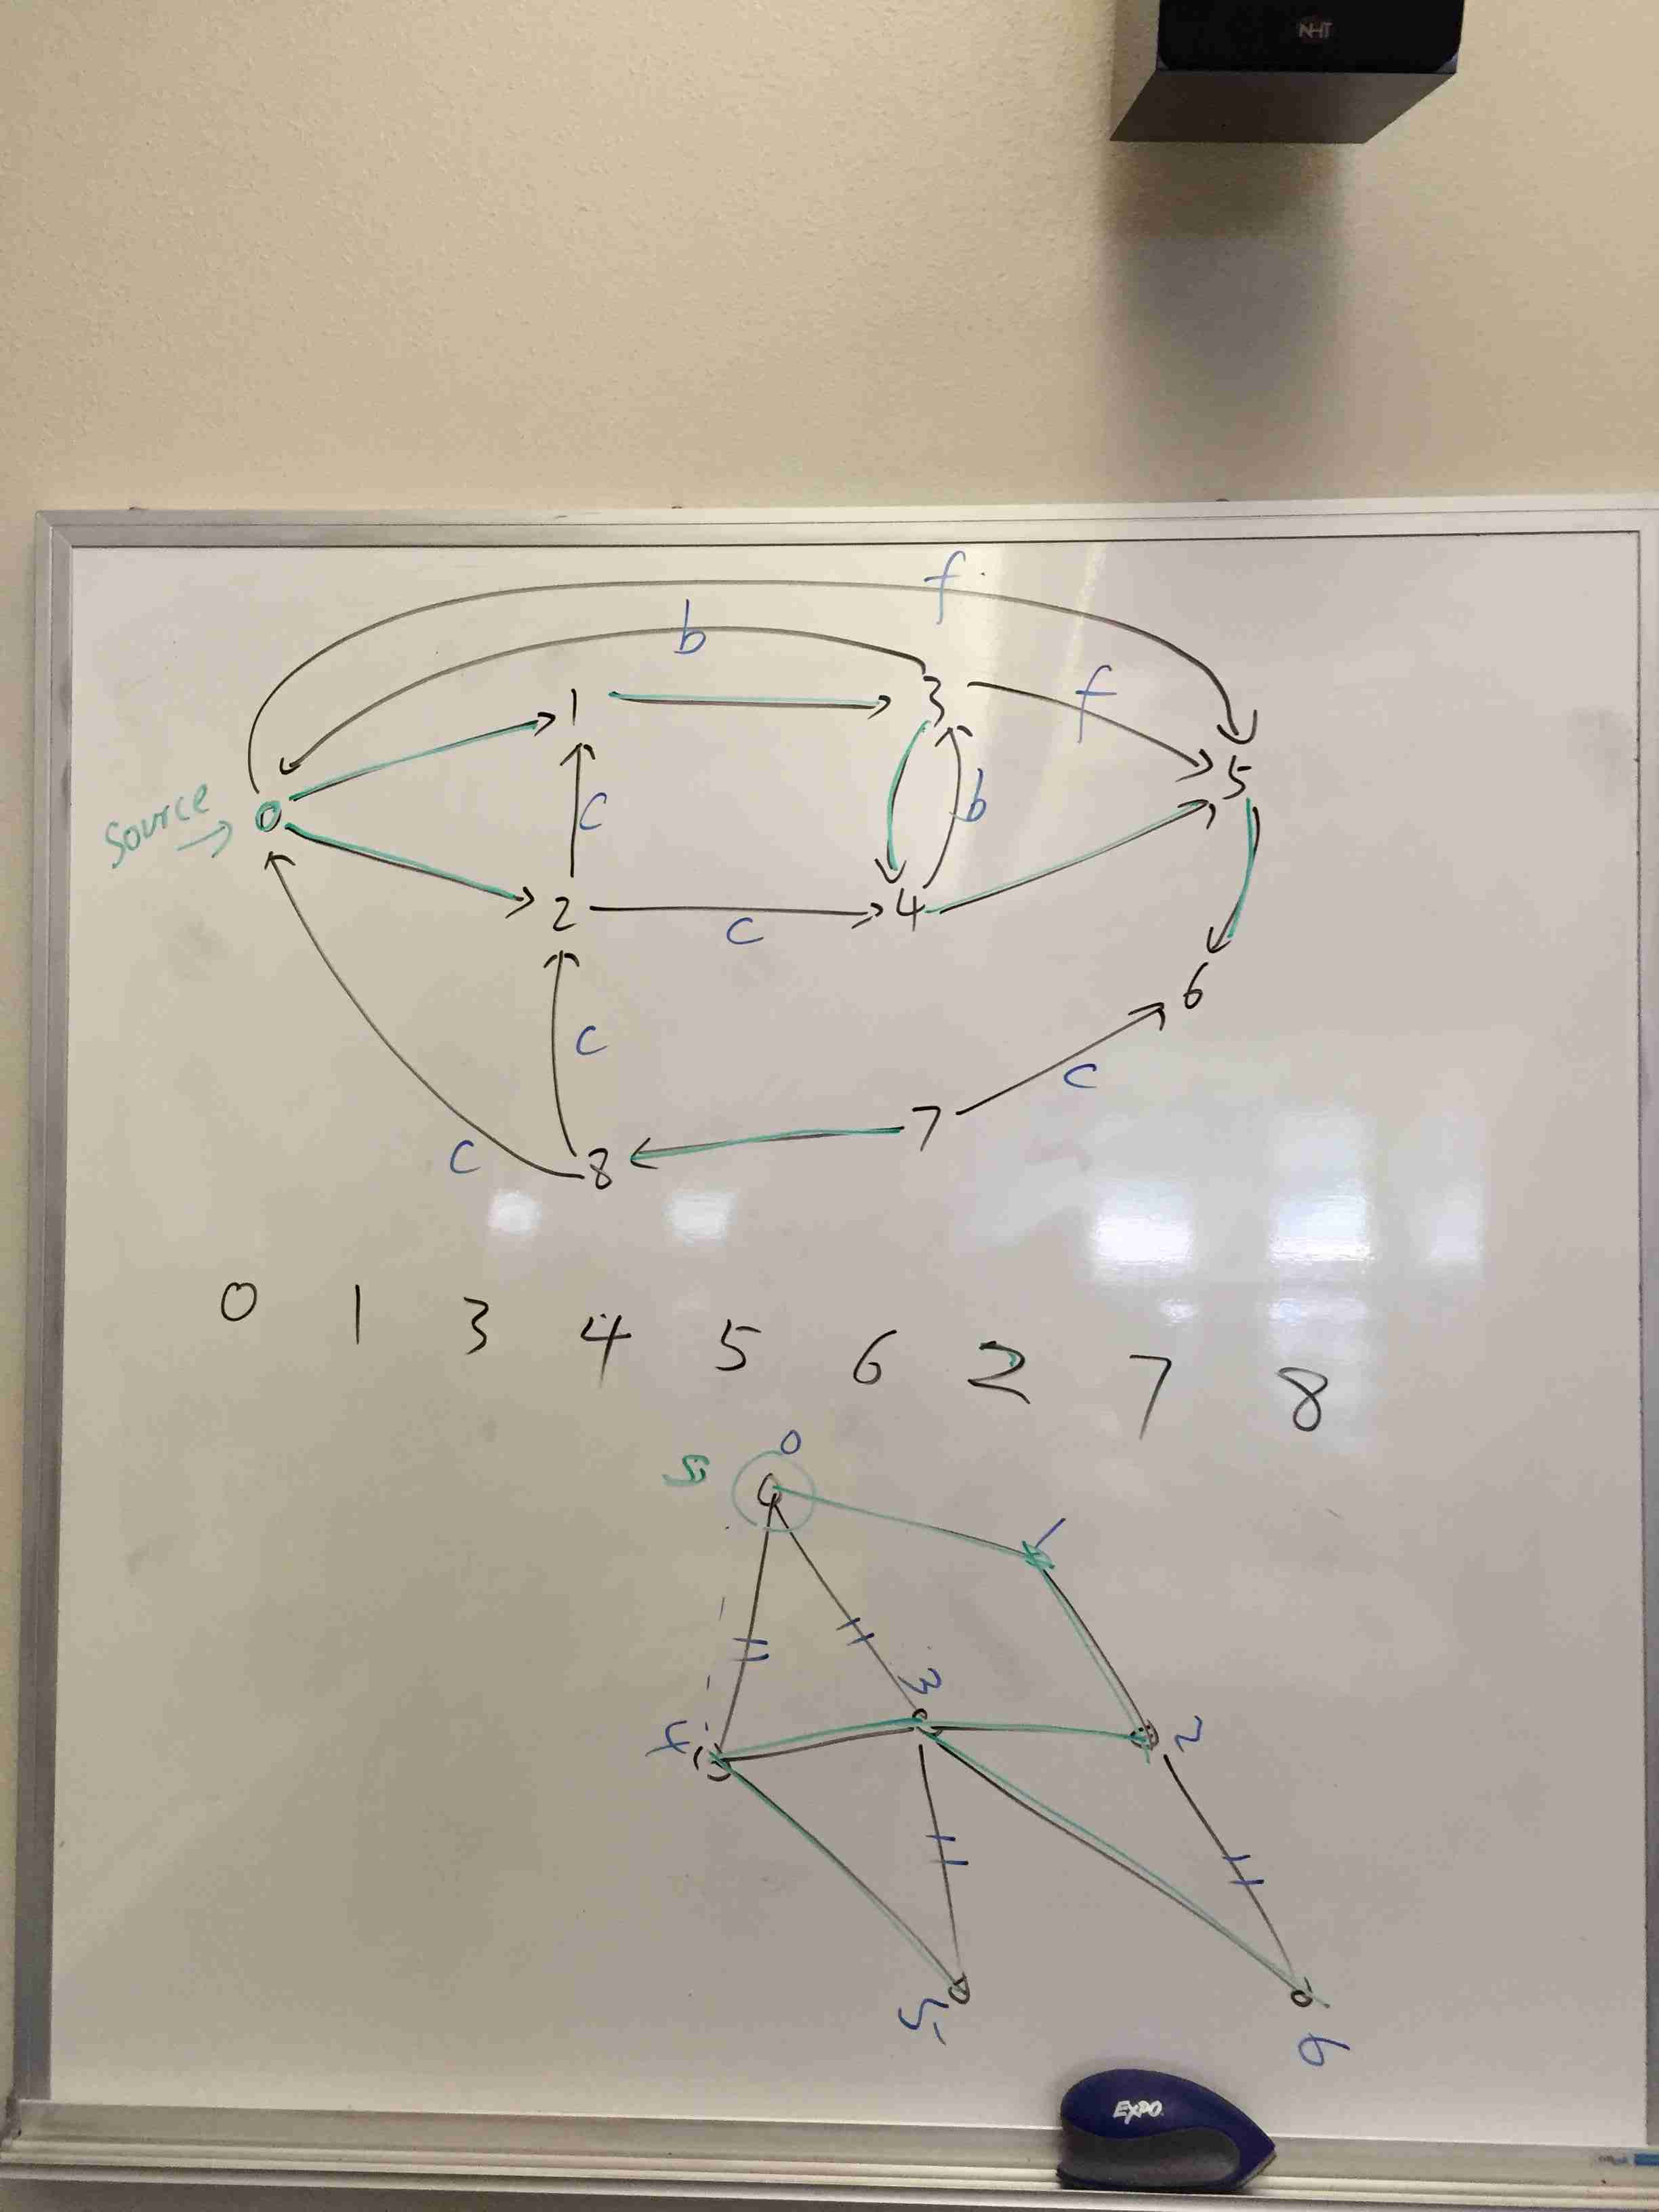 NHT
f
b
1
3
f
Source
0
c
b
5
2
4
c
6
c
c
7
c
8
0 1 3 4 5 6 2 7 8
0
S
1
3
4
2
5
6
EXPO